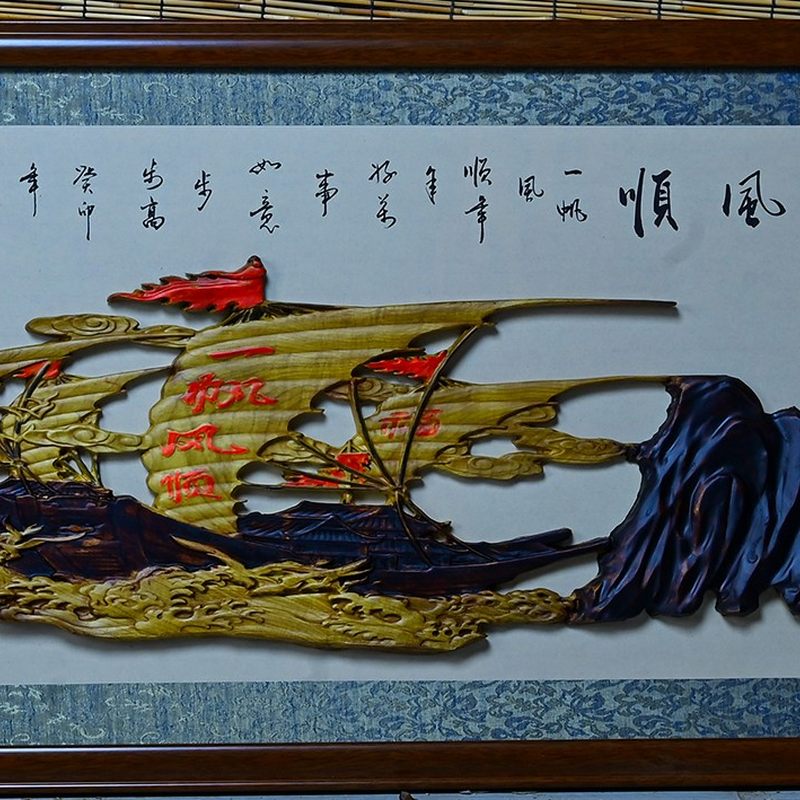 風順
一帆風順年年好萬事如意步步高
癸卯年
一帆风顺
福